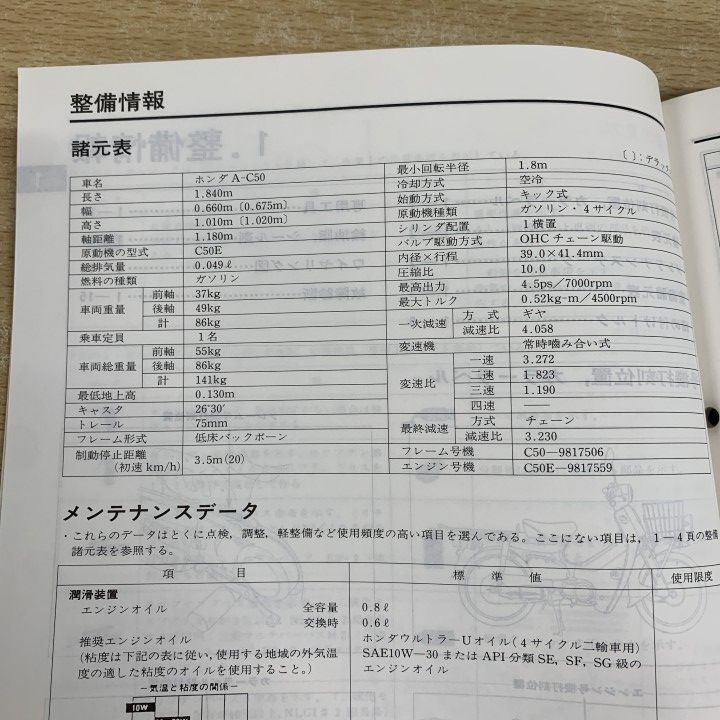 整備情報
諸元表
〔 〕：デラック
車名 ホンダ A-C50
長さ 1.840m
幅 0.660m〔0.675m〕
高さ 1.010m〔1.020m〕
軸距離 1.180m
原動機の型式 C50E
総排気量 0.049ℓ
燃料の種類 ガソリン
車両重量 前軸 37kg
後軸 49kg
計 86kg
乗車定員 1名
車両総重量 前軸 55kg
後軸 86kg
計 141kg
最低地上高 0.130m
キャスタ 26°30′
トレール 75mm
フレーム形式 低床バックボーン
制動停止距離
(初速 km/h) 3.5m(20)
最小回転半径 1.8m
冷却方式 空冷
始動方式 キック式
原動機種類 ガソリン・4サイクル
シリンダ配置 1横置
バルブ駆動方式 OHCチェーン駆動
内径×行程 39.0×41.4mm
圧縮比 10.0
最高出力 4.5ps／7000rpm
最大トルク 0.52kg-m／4500rpm
一次減速 方式 ギヤ
減速比 4.058
変速機 常時噛み合い式
変速比 一速 3.272
二速 1.823
三速 1.190
四速 ―
最終減速 方式 チェーン
減速比 3.230
フレーム号機 C50―9817506
エンジン号機 C50E―9817559
メンテナンスデータ
・これらのデータはとくに点検，調整，軽整備など使用頻度の高い項目を選んである。ここにない項目は，1－4頁の整備
諸元表を参照する。
項目 標準値 使用限度
潤滑装置
エンジンオイル 全容量 0.8ℓ
交換時 0.6ℓ
推奨エンジンオイル ホンダウルトラ－Uオイル(4サイクル二輪車用)
(粘度は下記の表に従い，使用する地域の外気温 SAE10W―30 または API 分類 SE, SF, SG 級の
度の適した粘度のオイルを使用すること。) エンジンオイル
－気温と粘度の関係－
10W